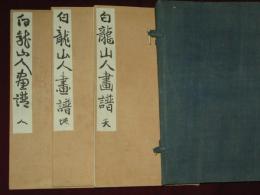 白龍山人畫譜 天
白龍山人畫譜 地
白龍山人畫譜 人